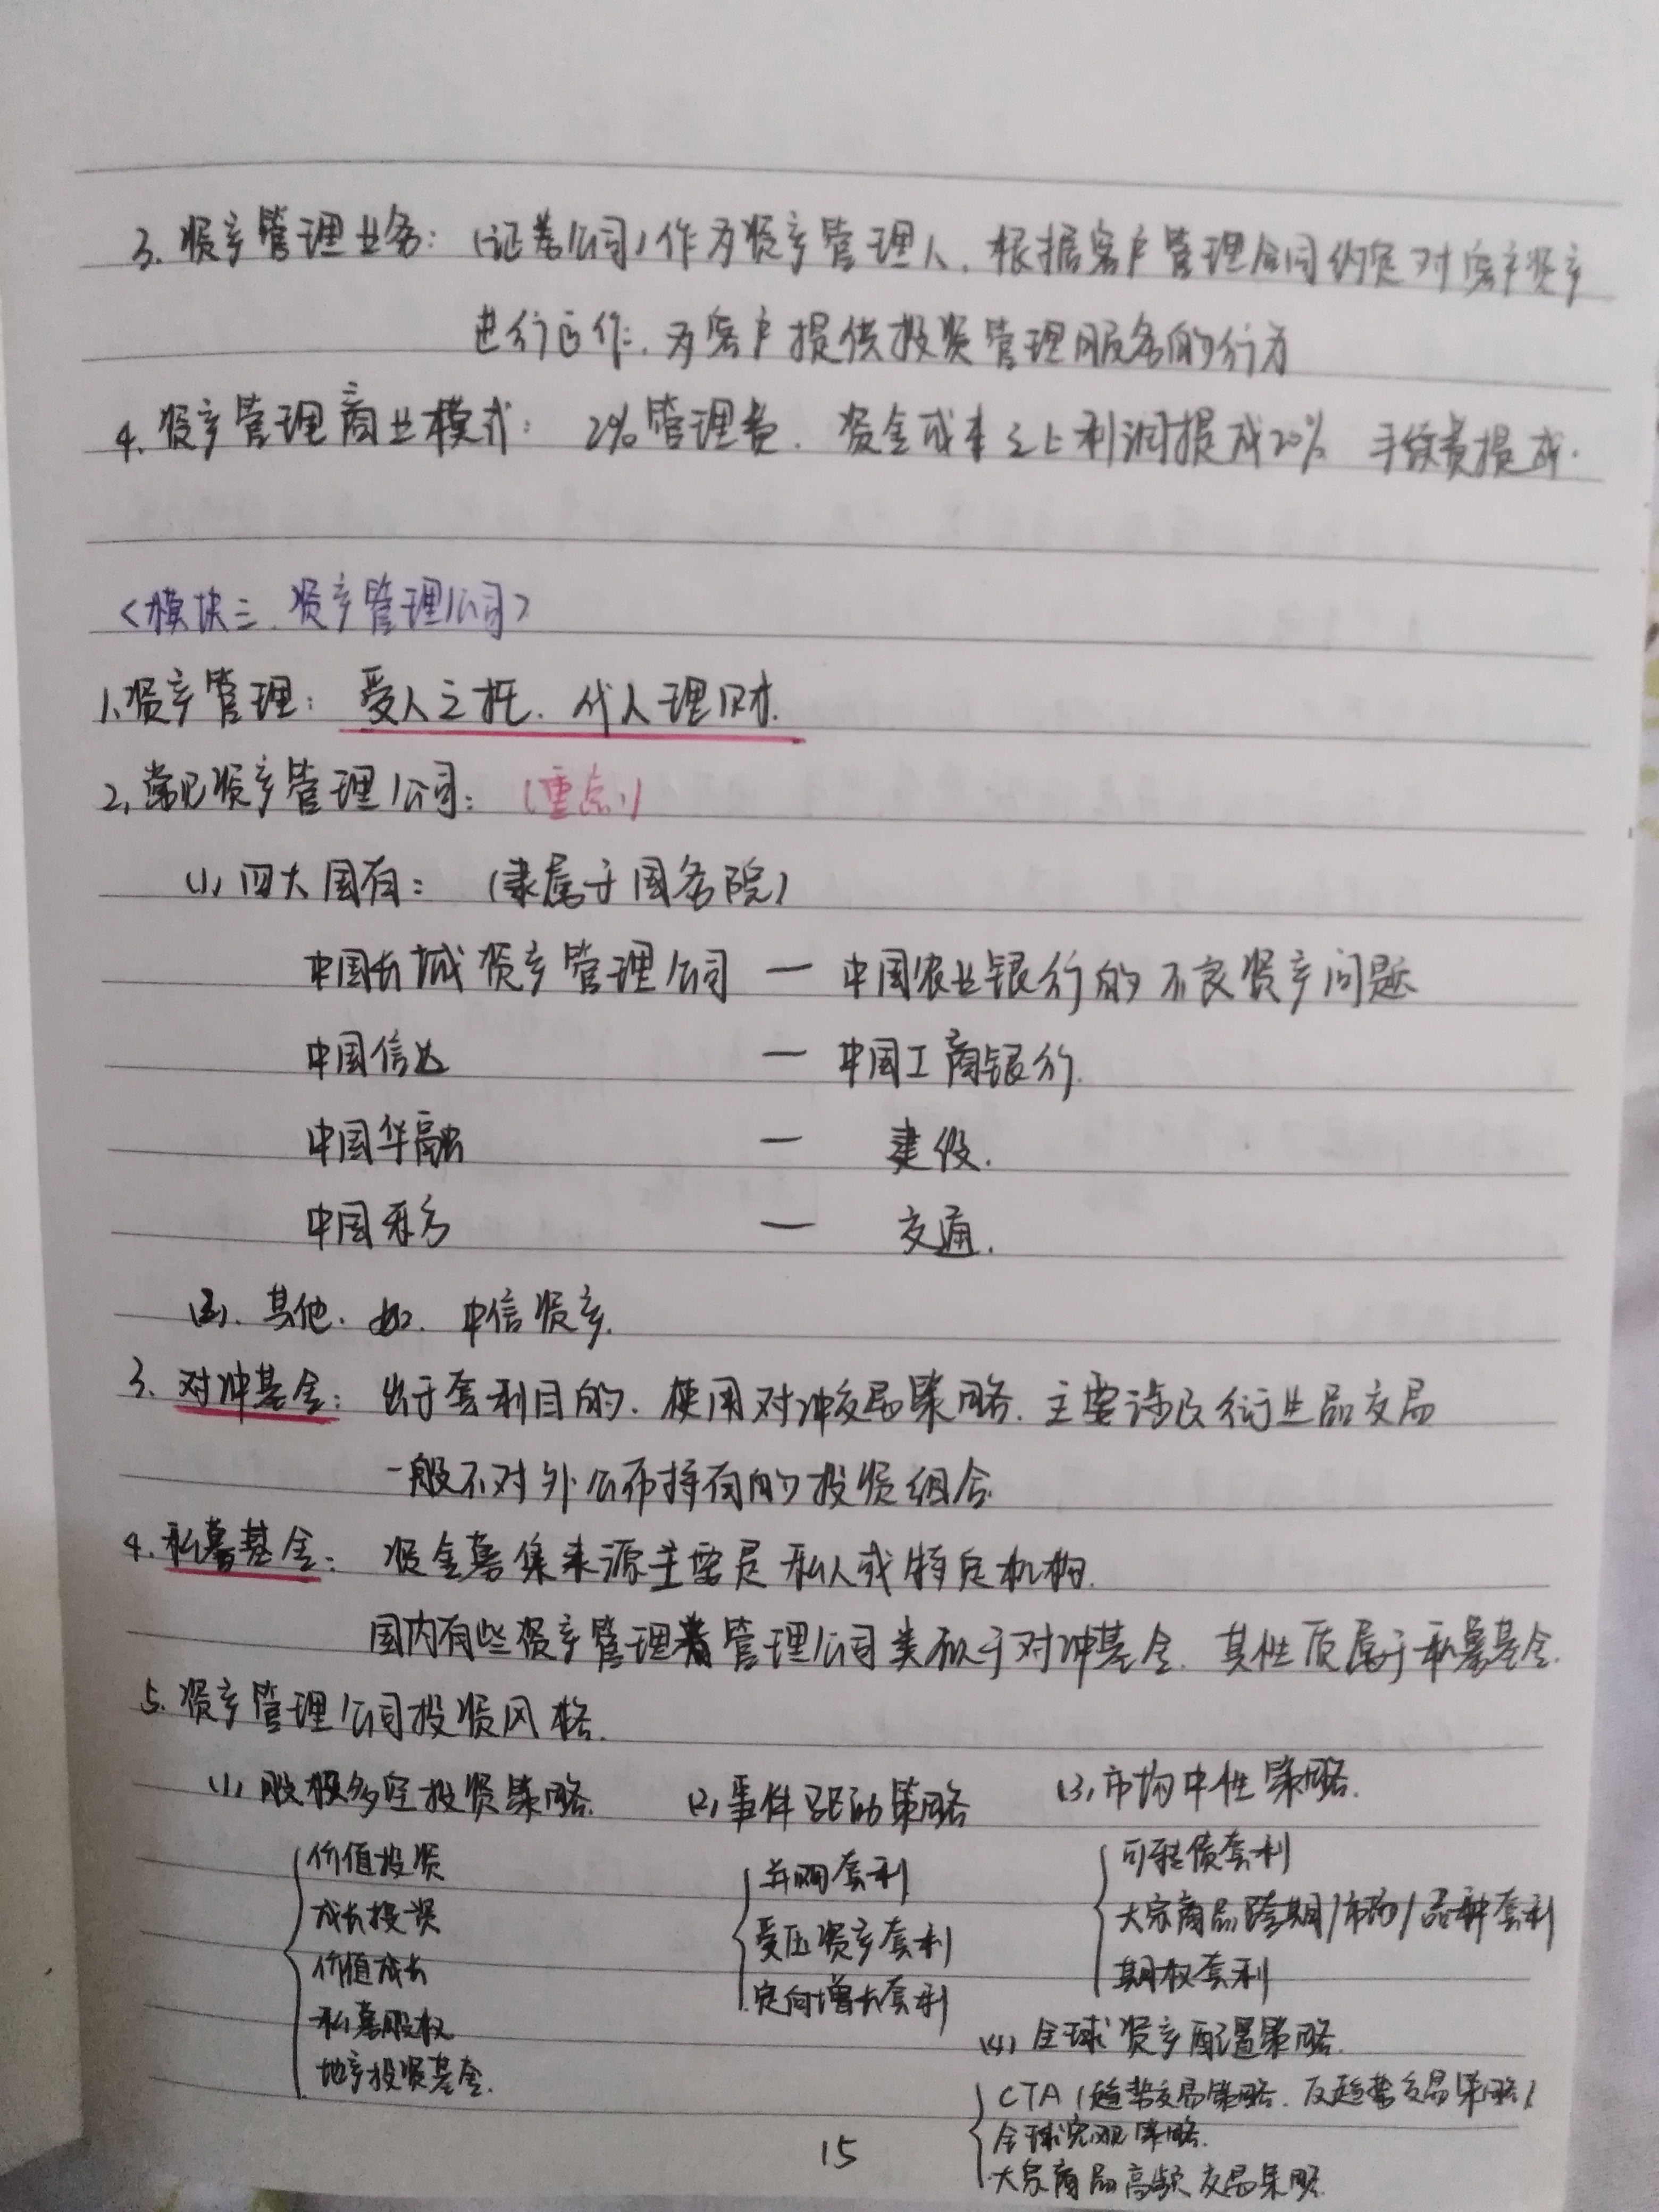 3. 资产管理业务：(证券公司)作为资产管理人，根据客户管理合同约定对客户资产
进行运作，为客户提供投资管理服务的行为
4. 资产管理商业模式：2%管理费，资金成本之上利润提成20% 手续费提成.
<模块三、资产管理公司>
1、资产管理：受人之托，代人理财.
2、常见资产管理公司：(重点)
(1) 四大国有：(隶属于国务院)
中国长城资产管理公司 — 中国农业银行的不良资产问题
中国信达 — 中国工商银行.
中国华融 — 建设.
中国东方 — 交通.
(2). 其他. 如. 中信资产.
3. 对冲基金：出于套利目的，使用对冲交易策略，主要涉及衍生品交易
一般不对外公布持有的投资组合
4. 私募基金：资金募集来源主要是私人或特定机构.
国内有些资产管理管理公司类似于对冲基金，其性质属于私募基金.
5. 资产管理公司投资风格.
(1) 股权多空投资策略 (2) 事件驱动策略 (3) 市场中性策略.
价值投资 并购套利 可转债套利
成长投资 受压资产套利 大宗商品跨期/市场/品种套利
价值成长 定向增长套利 期权套利
私募股权
地产投资基金.
(4) 全球资产配置策略.
CTA (趋势交易策略、反趋势交易策略)
全球宏观策略.
大宗商品高频交易策略
15